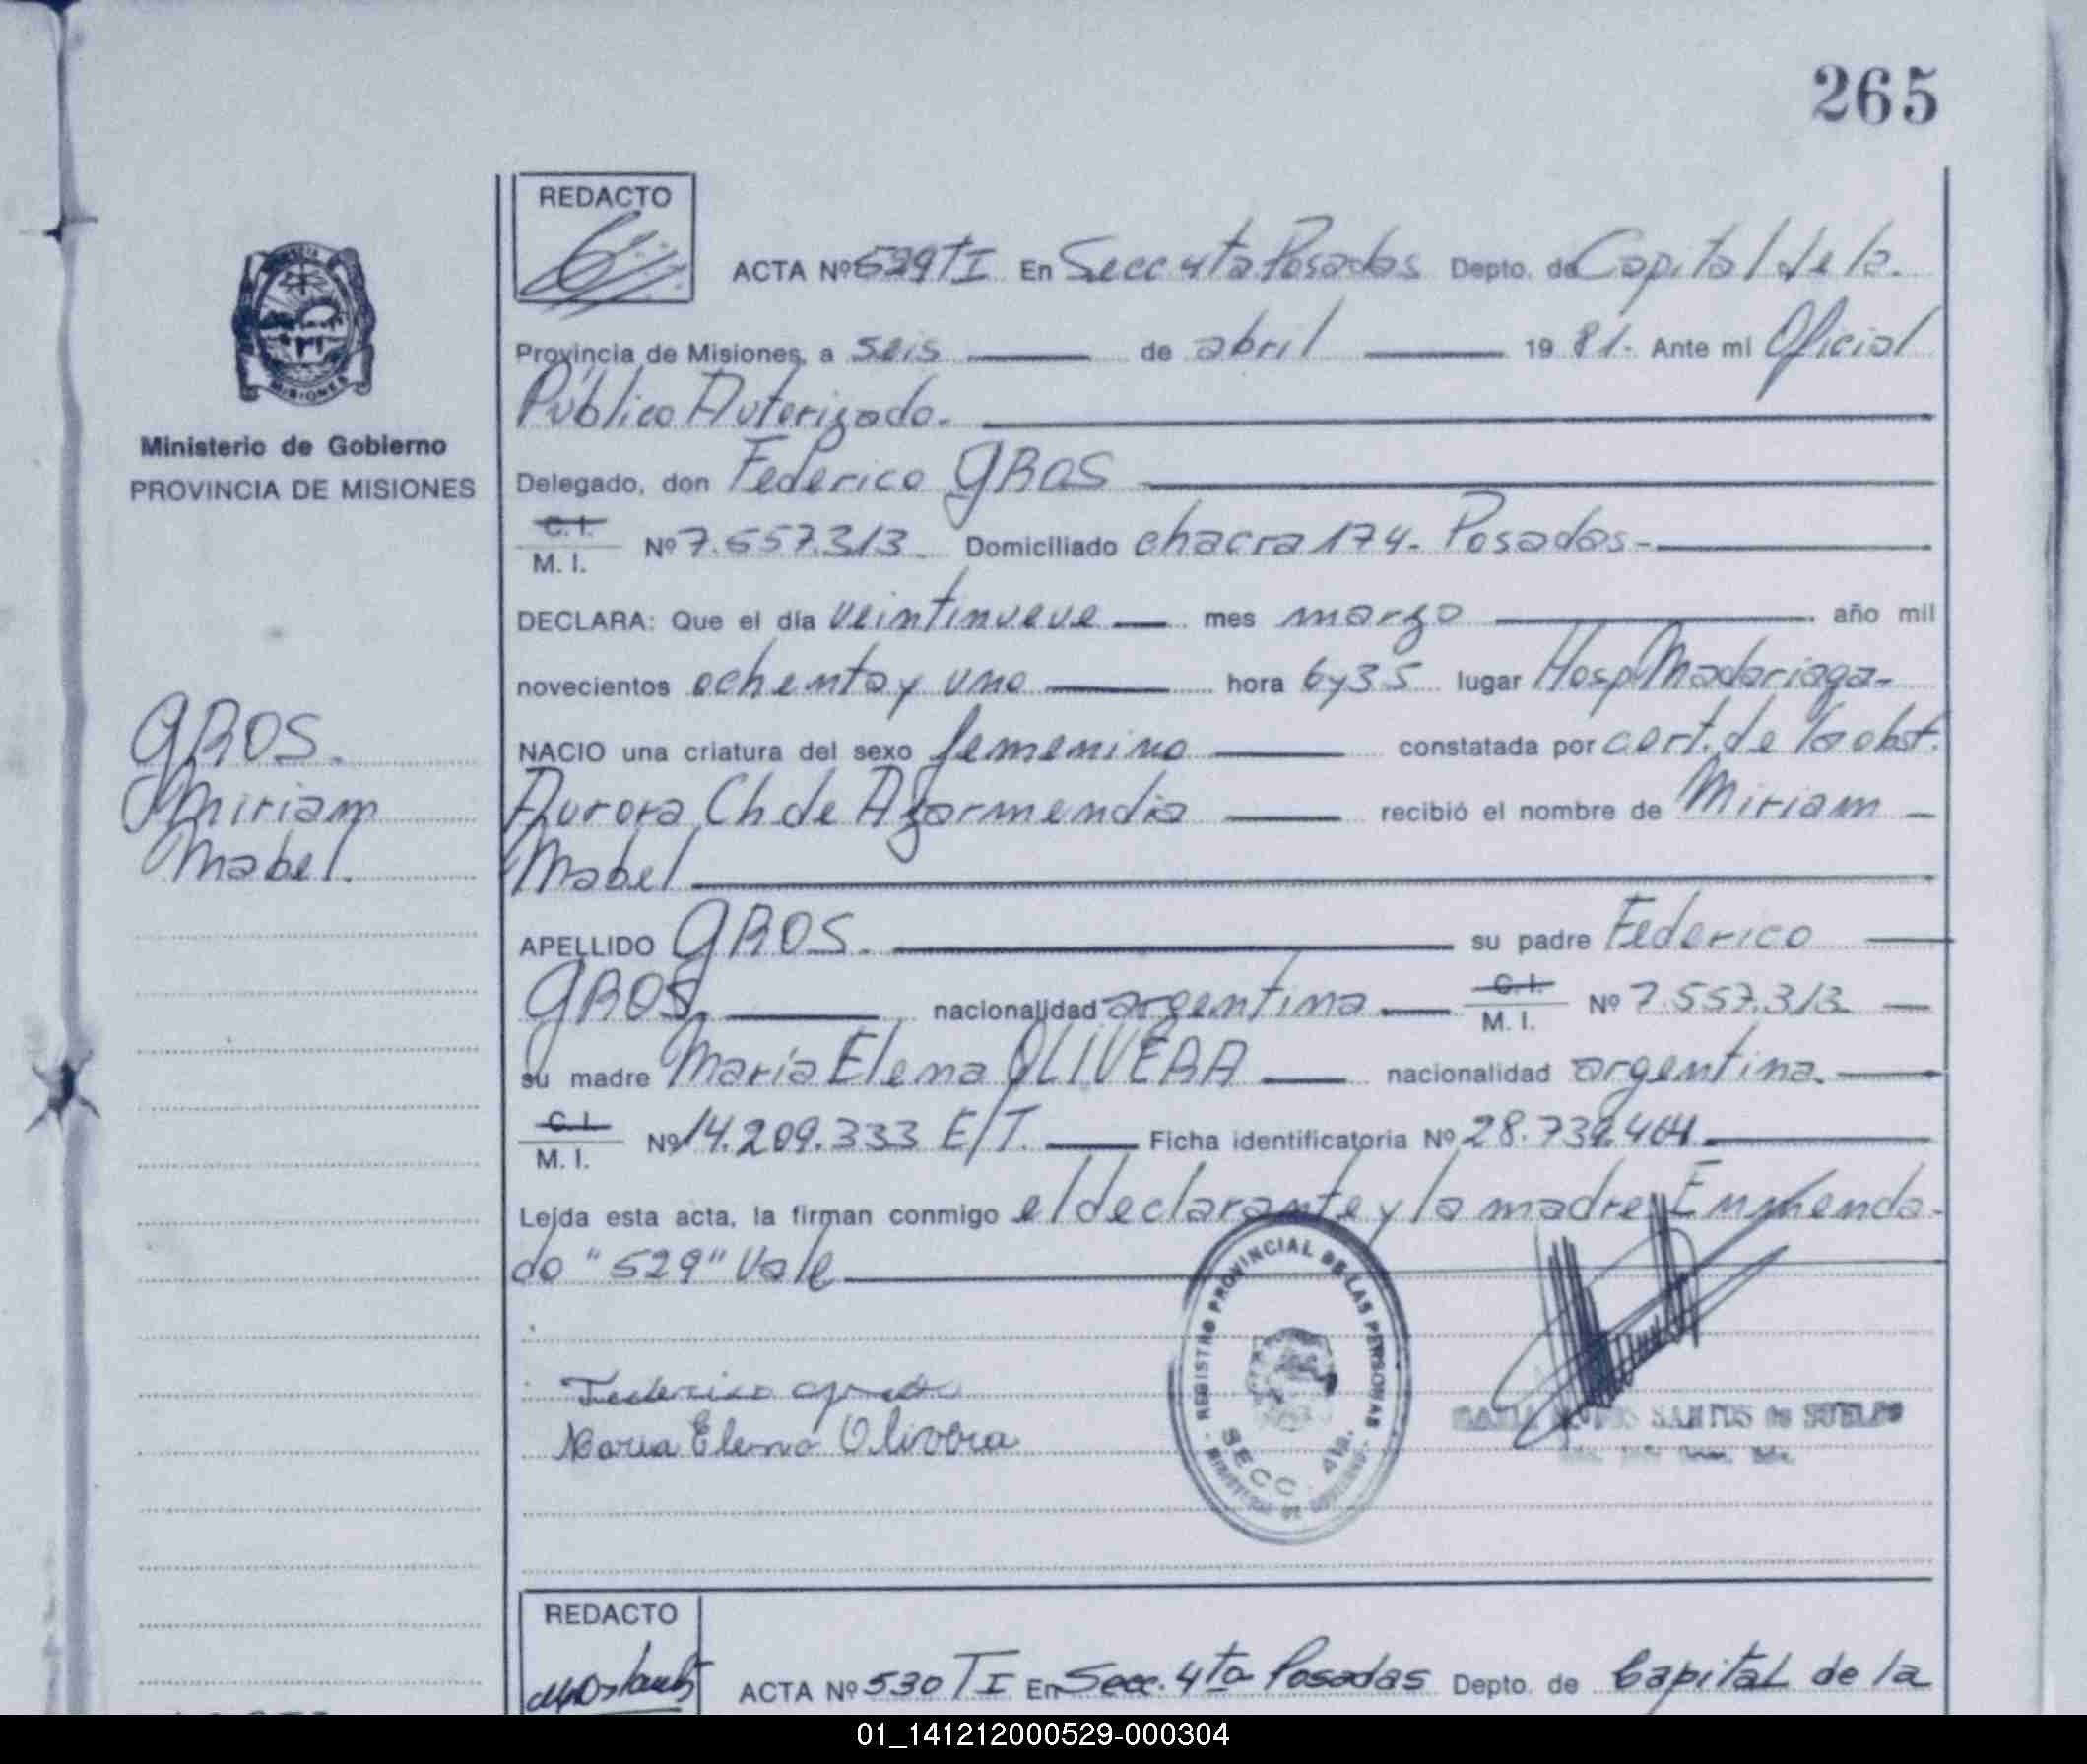 265
REDACTO
ACTA Nº 529 T I En Secc 4ta Posadas Depto. de Capital de la.
Provincia de Misiones, a seis de abril 19 81- Ante mi Oficial
Público Autorizado.
Ministerio de Gobierno
PROVINCIA DE MISIONES
Delegado, don Federico GROS
C. I.
M. I. Nº 7.557.313 Domiciliado chacra 174- Posadas-
DECLARA: Que el día veintinueve mes marzo año mil
novecientos ochenta y uno hora 6y35 lugar Hosp Madariaga-
GROS.
Miriam
Mabel.
NACIO una criatura del sexo femenino constatada por cert. de la obst.
Aurora Ch de Azarmendia recibió el nombre de Miriam
Mabel
APELLIDO GROS. su padre Federico
GROS. nacionalidad argentina C. I.
M. I. Nº 7.557.313
su madre María Elena OLIVERA nacionalidad argentina.
C. I.
M. I. Nº 14.209.333 E/T. Ficha identificatoria Nº 28.739.464
Leída esta acta, la firman conmigo el declarante y la madre Enmenda-
do "529" Vale
Federico
Maria Elena Olivera
REGISTRO PROVINCIAL DE LAS PERSONAS
SECC. 4ta.
MINISTERIO DE GOBIERNO
SANTOS de SUELDO
REDACTO
ACTA Nº 530 T I En Secc. 4ta Posadas Depto. de Capital de la
01_141212000529-000304